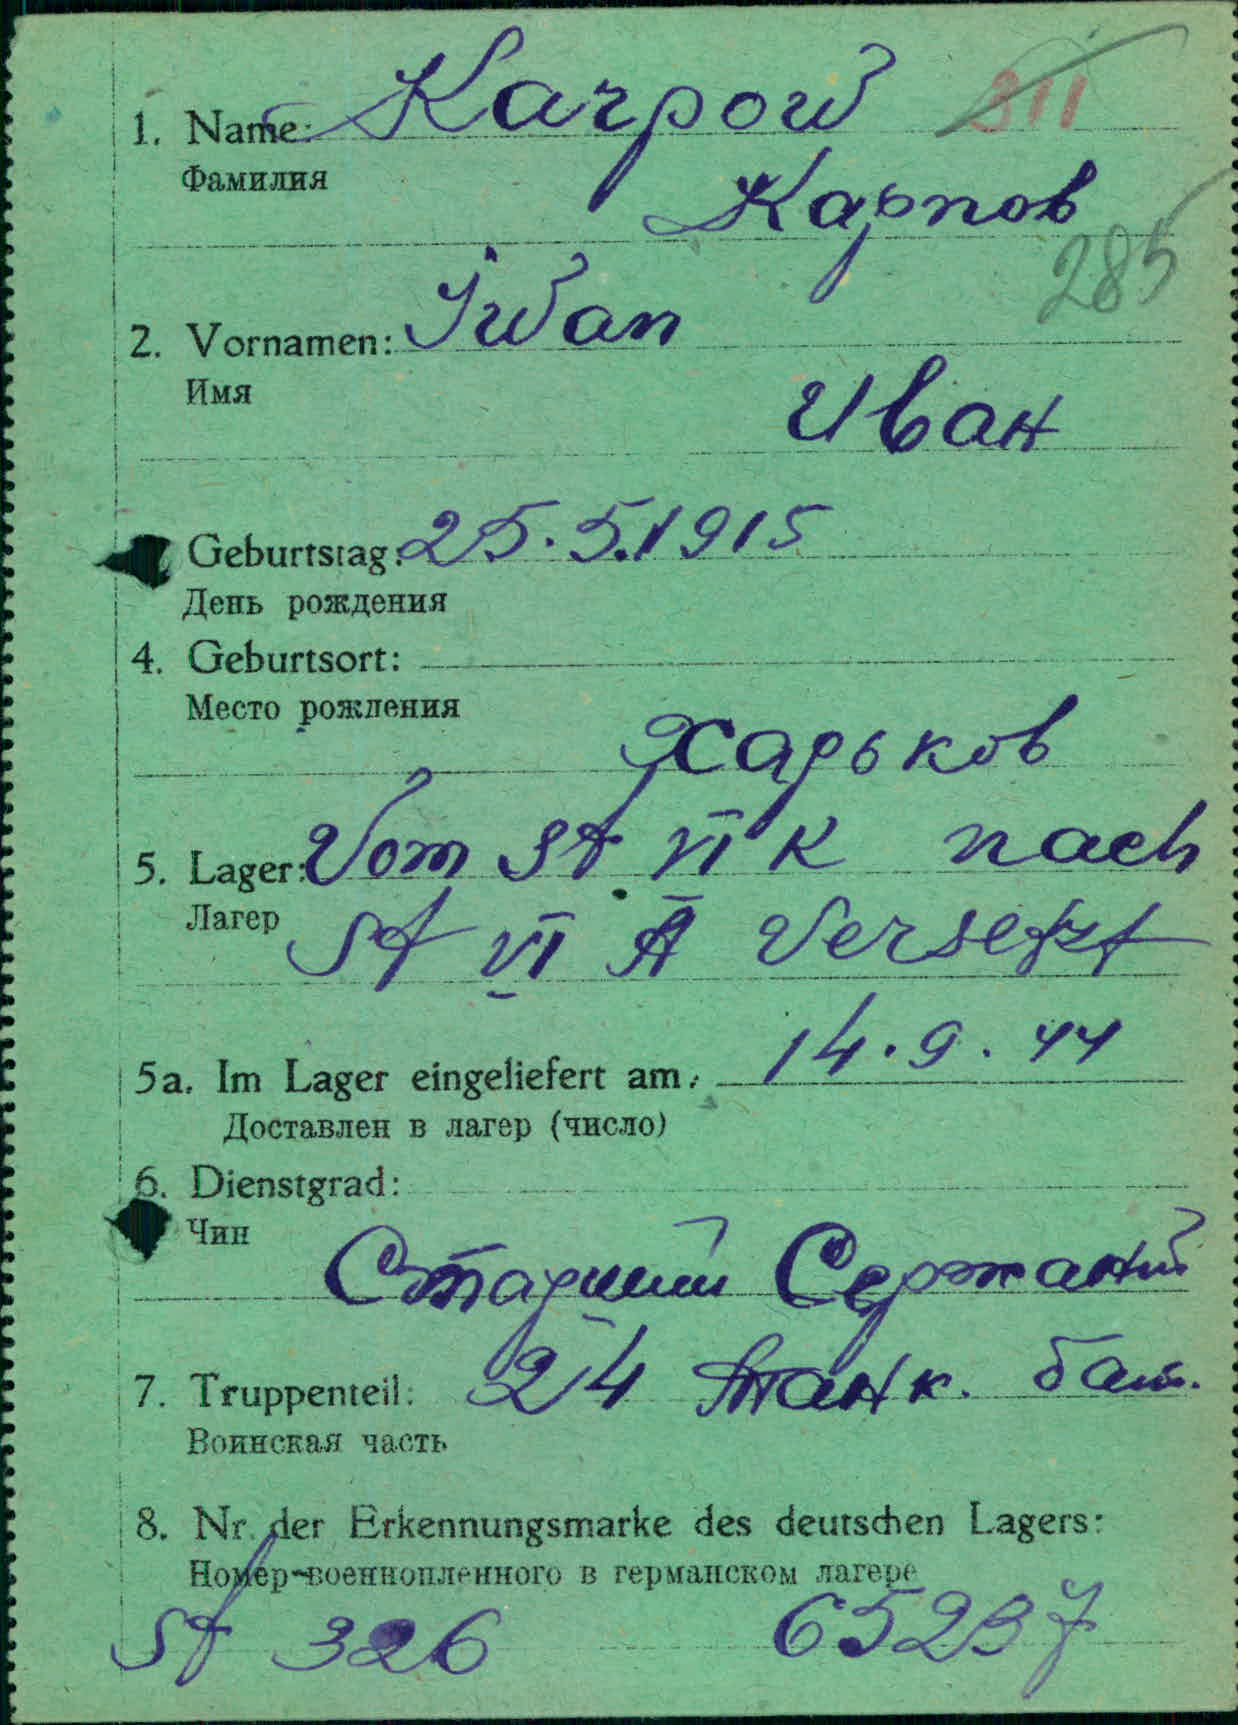 1. Name: Karpow 311
Фамилия
Карпов
285
2. Vornamen: Iwan
Имя
Иван
Geburtstag: 25.5.1915
День рождения
4. Geburtsort:
Место рождения
Харьков
5. Lager: Vom St VI K nach
Лагер
St VI A versetzt
5a. Im Lager eingeliefert am: 14.9.44
Доставлен в лагер (число)
6. Dienstgrad:
Чин
Старший Сержант
7. Truppenteil: 24 танк. бат.
Воинская часть
8. Nr. der Erkennungsmarke des deutschen Lagers:
Номер военнопленного в германском лагере
St 326 65237